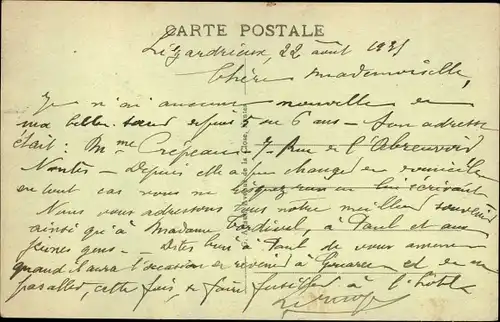 CARTE POSTALE
Lézardrieux, 22 août 1931
Chère Mademoiselle,
Je n'ai aucune nouvelle de
ma belle-sœur depuis 5 ou 6 ans – Son adresse
était : Mme Crépeau – 7 Rue de l'Abreuvoir
Nantes – Depuis elle a pu changer de domicile
en tout cas vous ne risquez rien en lui écrivant
Nous vous adressons tous notre meilleur souvenir
ainsi qu'à Madame Tardivel, à Paul et aux
jeunes gens – Dites bien à Paul de vous amener
quand il aura l'occasion de revenir à Gouarec et de ne
pas aller, cette fois, se faire fusiller à l'hôtel